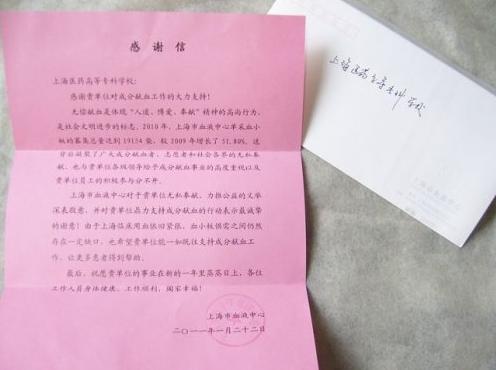 感谢信
上海医药高等专科学校:
感谢贵单位对成分献血工作的大力支持!
无偿献血是体现“人道、博爱、奉献”精神的高尚行为,
是社会文明进步的标志。2010年,上海市血液中心单采血小
板的募集总量达到19154袋,较2009年增长了51.80%。这
背后凝聚了广大成分献血者、志愿者和社会各界的无私奉
献,也与贵单位各级领导给予成分献血事业的高度重视以及
贵单位员工的积极参与分不开。
上海市血液中心对于贵单位无私奉献、力推公益的义举
深表敬意,并对贵单位鼎力支持成分献血的行动表示最诚挚
的谢意!由于上海临床用血依旧紧张,血小板供需之间仍然
存在一定缺口,也希望贵单位能一如既往支持成分献血工
作,让更多患者得到帮助。
最后,祝愿贵单位的事业在新的一年里蒸蒸日上,各位
工作人员身体健康、工作顺利,阖家幸福!
上海市血液中心
二〇一一年一月二十二日
上海医药高等专科学校